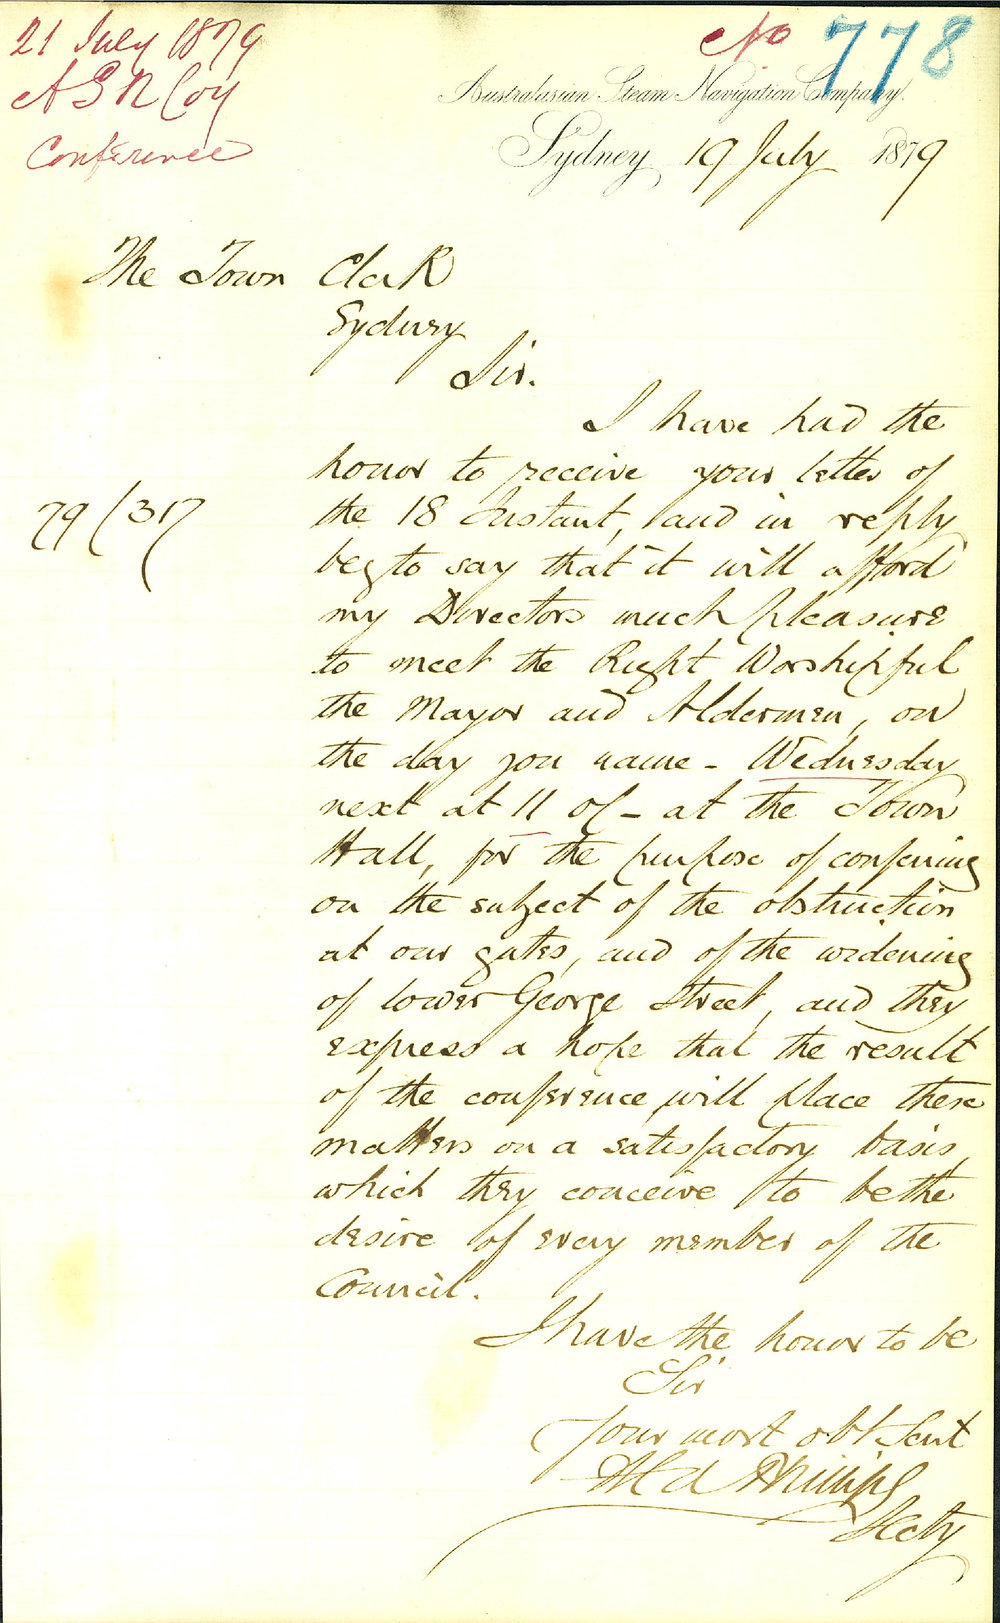 21 July 1879
A S N Coy
Conference
No 778
Australasian Steam Navigation Company.
Sydney 19 July 1879
The Town Clerk
Sydney
Sir.
I have had the
honor to receive your letter of
79/317
the 18 Instant, and in reply
beg to say that it will afford
my Directors much pleasure
to meet the Right Worshipful
the Mayor and Aldermen, on
the day you name - Wednesday
next at 11 o/c - at the Town
Hall, for the purpose of conferring
on the subject of the obstruction
at our gates, and of the widening
of lower George Street, and they
express a hope that the result
of the conference will place these
matters on a satisfactory basis,
which they conceive to be the
desire of every member of the
Council.
I have the honor to be
Sir
Your most obt Servt
Phillips
Secty